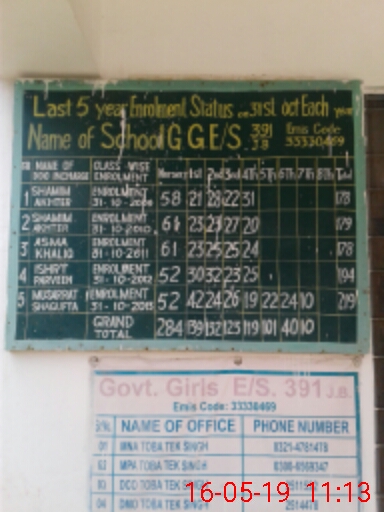 Last 5 year Enrolment Status on 31st oct Each year
Name of School G G E/S. 391 J.B Emis Code 33330469
SR NAME OF DDO INCHARGE CLASS-WISE ENROLMENT Nursery 1st 2nd 3rd 4th 5th 6th 7th 8th Total
1 SHAMIM AKHTER ENROLMENT 31-10-2009 58 21 28 22 31
2 SHAMIM AKHTER ENROLMENT 31-10-2010 61 23 27 20 179
3 ASMA KHALID ENROLMENT 31-10-2011 61 23 25 25 24 178
4 ISHRT PARVEEN ENROLMENT 31-10-2012 52 30 32 23 25 194
5 MUSARRAT SHAGUFTA ENROLMENT 31-10-2013 52 42 24 26 19 22 24 10 219
GRAND TOTAL 284 139 132 119 101 40 10
Govt. Girls E/S. 391 J.B.
Emis Code: 33330469
S/No. NAME OF OFFICE PHONE NUMBER
01 MNA TOBA TEK SINGH
02 MPA TOBA TEK SINGH
03 DCO TOBA TEK SINGH
04 DMO TOBA TEK SINGH 2514478
16-05-19 11:13